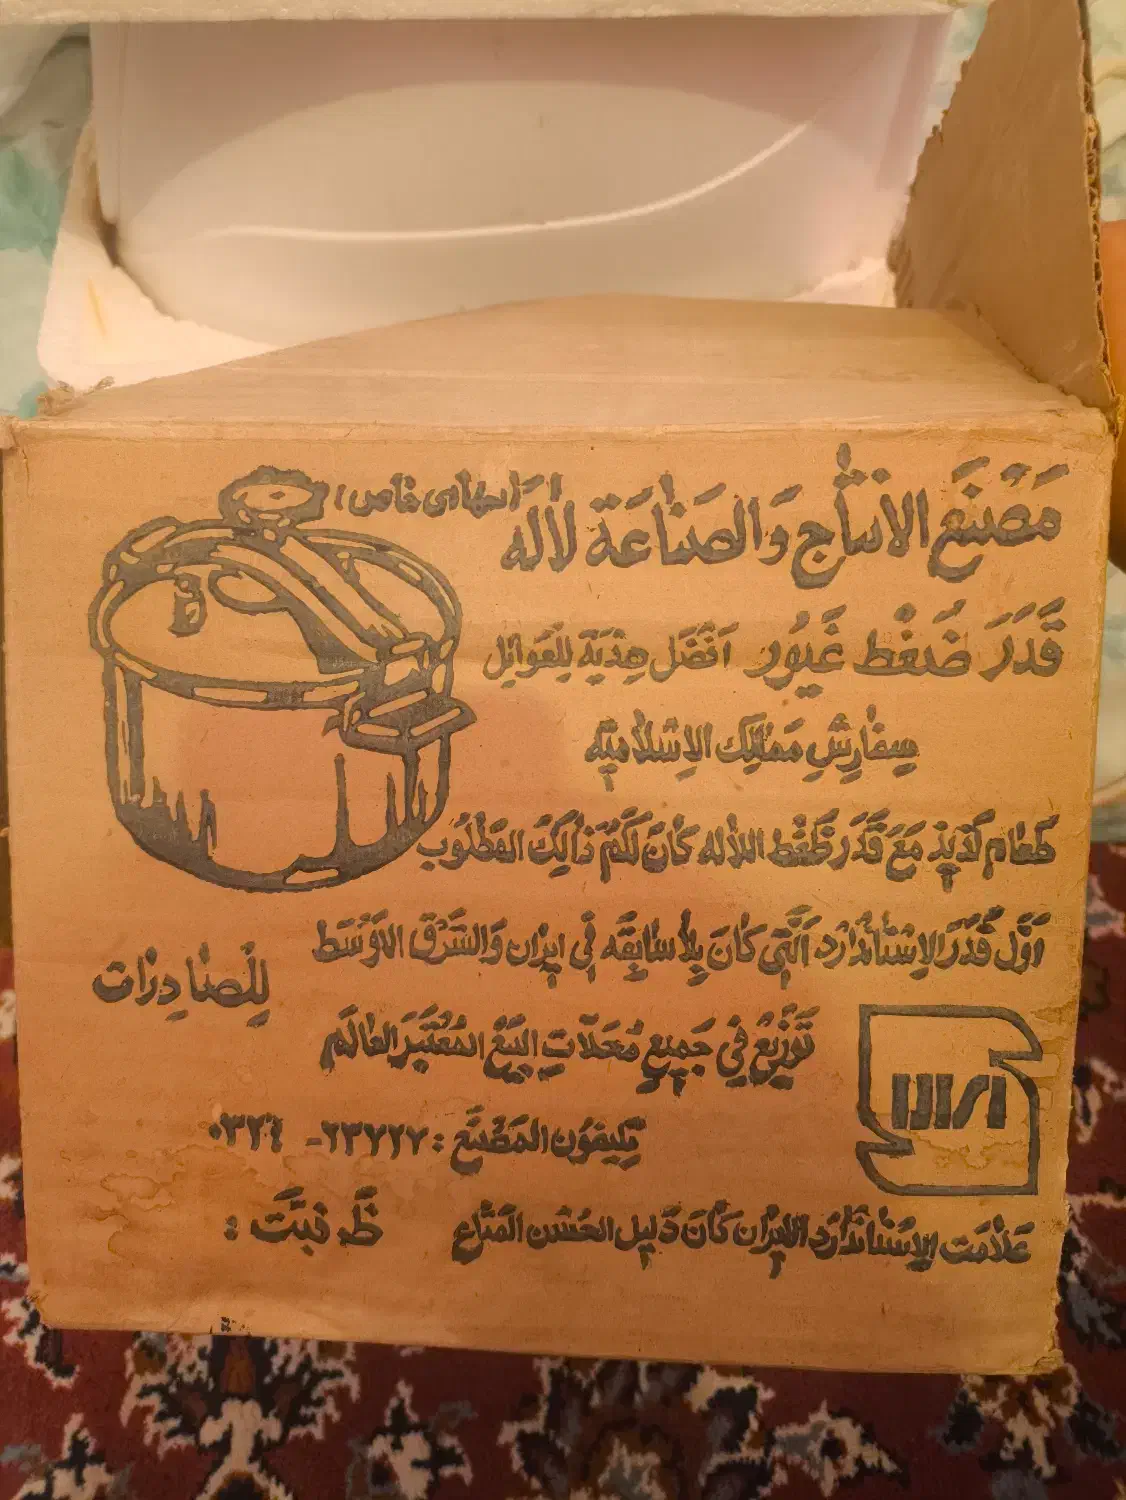 مَصْنَع الانتاج وَالصَناعَة لاٰلهٰ (سهامی خاص)
قَدَرَ ضَغْط غَیُور اَفْضَل هِدْیَة لِلعَوائِل
سفارِشِ مَمالِک الاِسْلامیّه
طَعام لَذیذ مَعَ قَدَر ظَغْط اللاٰله کانَ لَکُمْ ذٰالِکَ المَطْلُوب
اَوَّل قَدَرَ الاِسْتانْدٰارد اَلَّتی کانَ بِلاٰ سابِقَه فی ایران وَالشَرْق الاَوْسَط
لِلْصادِرات
تَوْزیعْ فی جَمیعِ مَحَلاّٰتِ البَیْعْ المُعْتَبَرَ العالَم
تِلیفوُن المَصْنَعْ : ۲۳۷۲۷- ۰۳۲۶
عَلاٰمَت الاِسْتانْدٰارد الایران کانَ دَلیل الحُسْن المَتاع
ظَ ثبَّت :